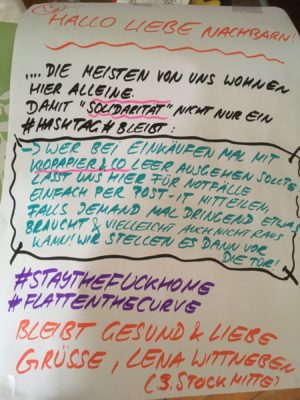 HALLO LIEBE NACHBARN!
....DIE MEISTEN VON UNS WOHNEN
HIER ALLEINE.
DAMIT "SOLIDARITÄT" NICHT NUR EIN
#HASHTAG# BLEIBT:
→ WER BEI EINKÄUFEN MAL MIT
KLOPAPIER & CO LEER AUSGEHEN SOLLTE
LASST UNS HIER FÜR NOTFÄLLE
EINFACH PER POST-IT MITTEILEN,
FALLS JEMAND MAL DRINGEND ETWAS
BRAUCHT & VIELLEICHT AUCH NICHT RAUS
KANN! WIR STELLEN ES DANN VOR
DIE TÜR!
#STAYTHEFUCKHOME
#FLATTENTHECURVE
BLEIBT GESUND & LIEBE
GRÜSSE, LENA WITTNEBEN
(3. STOCK MITTE)